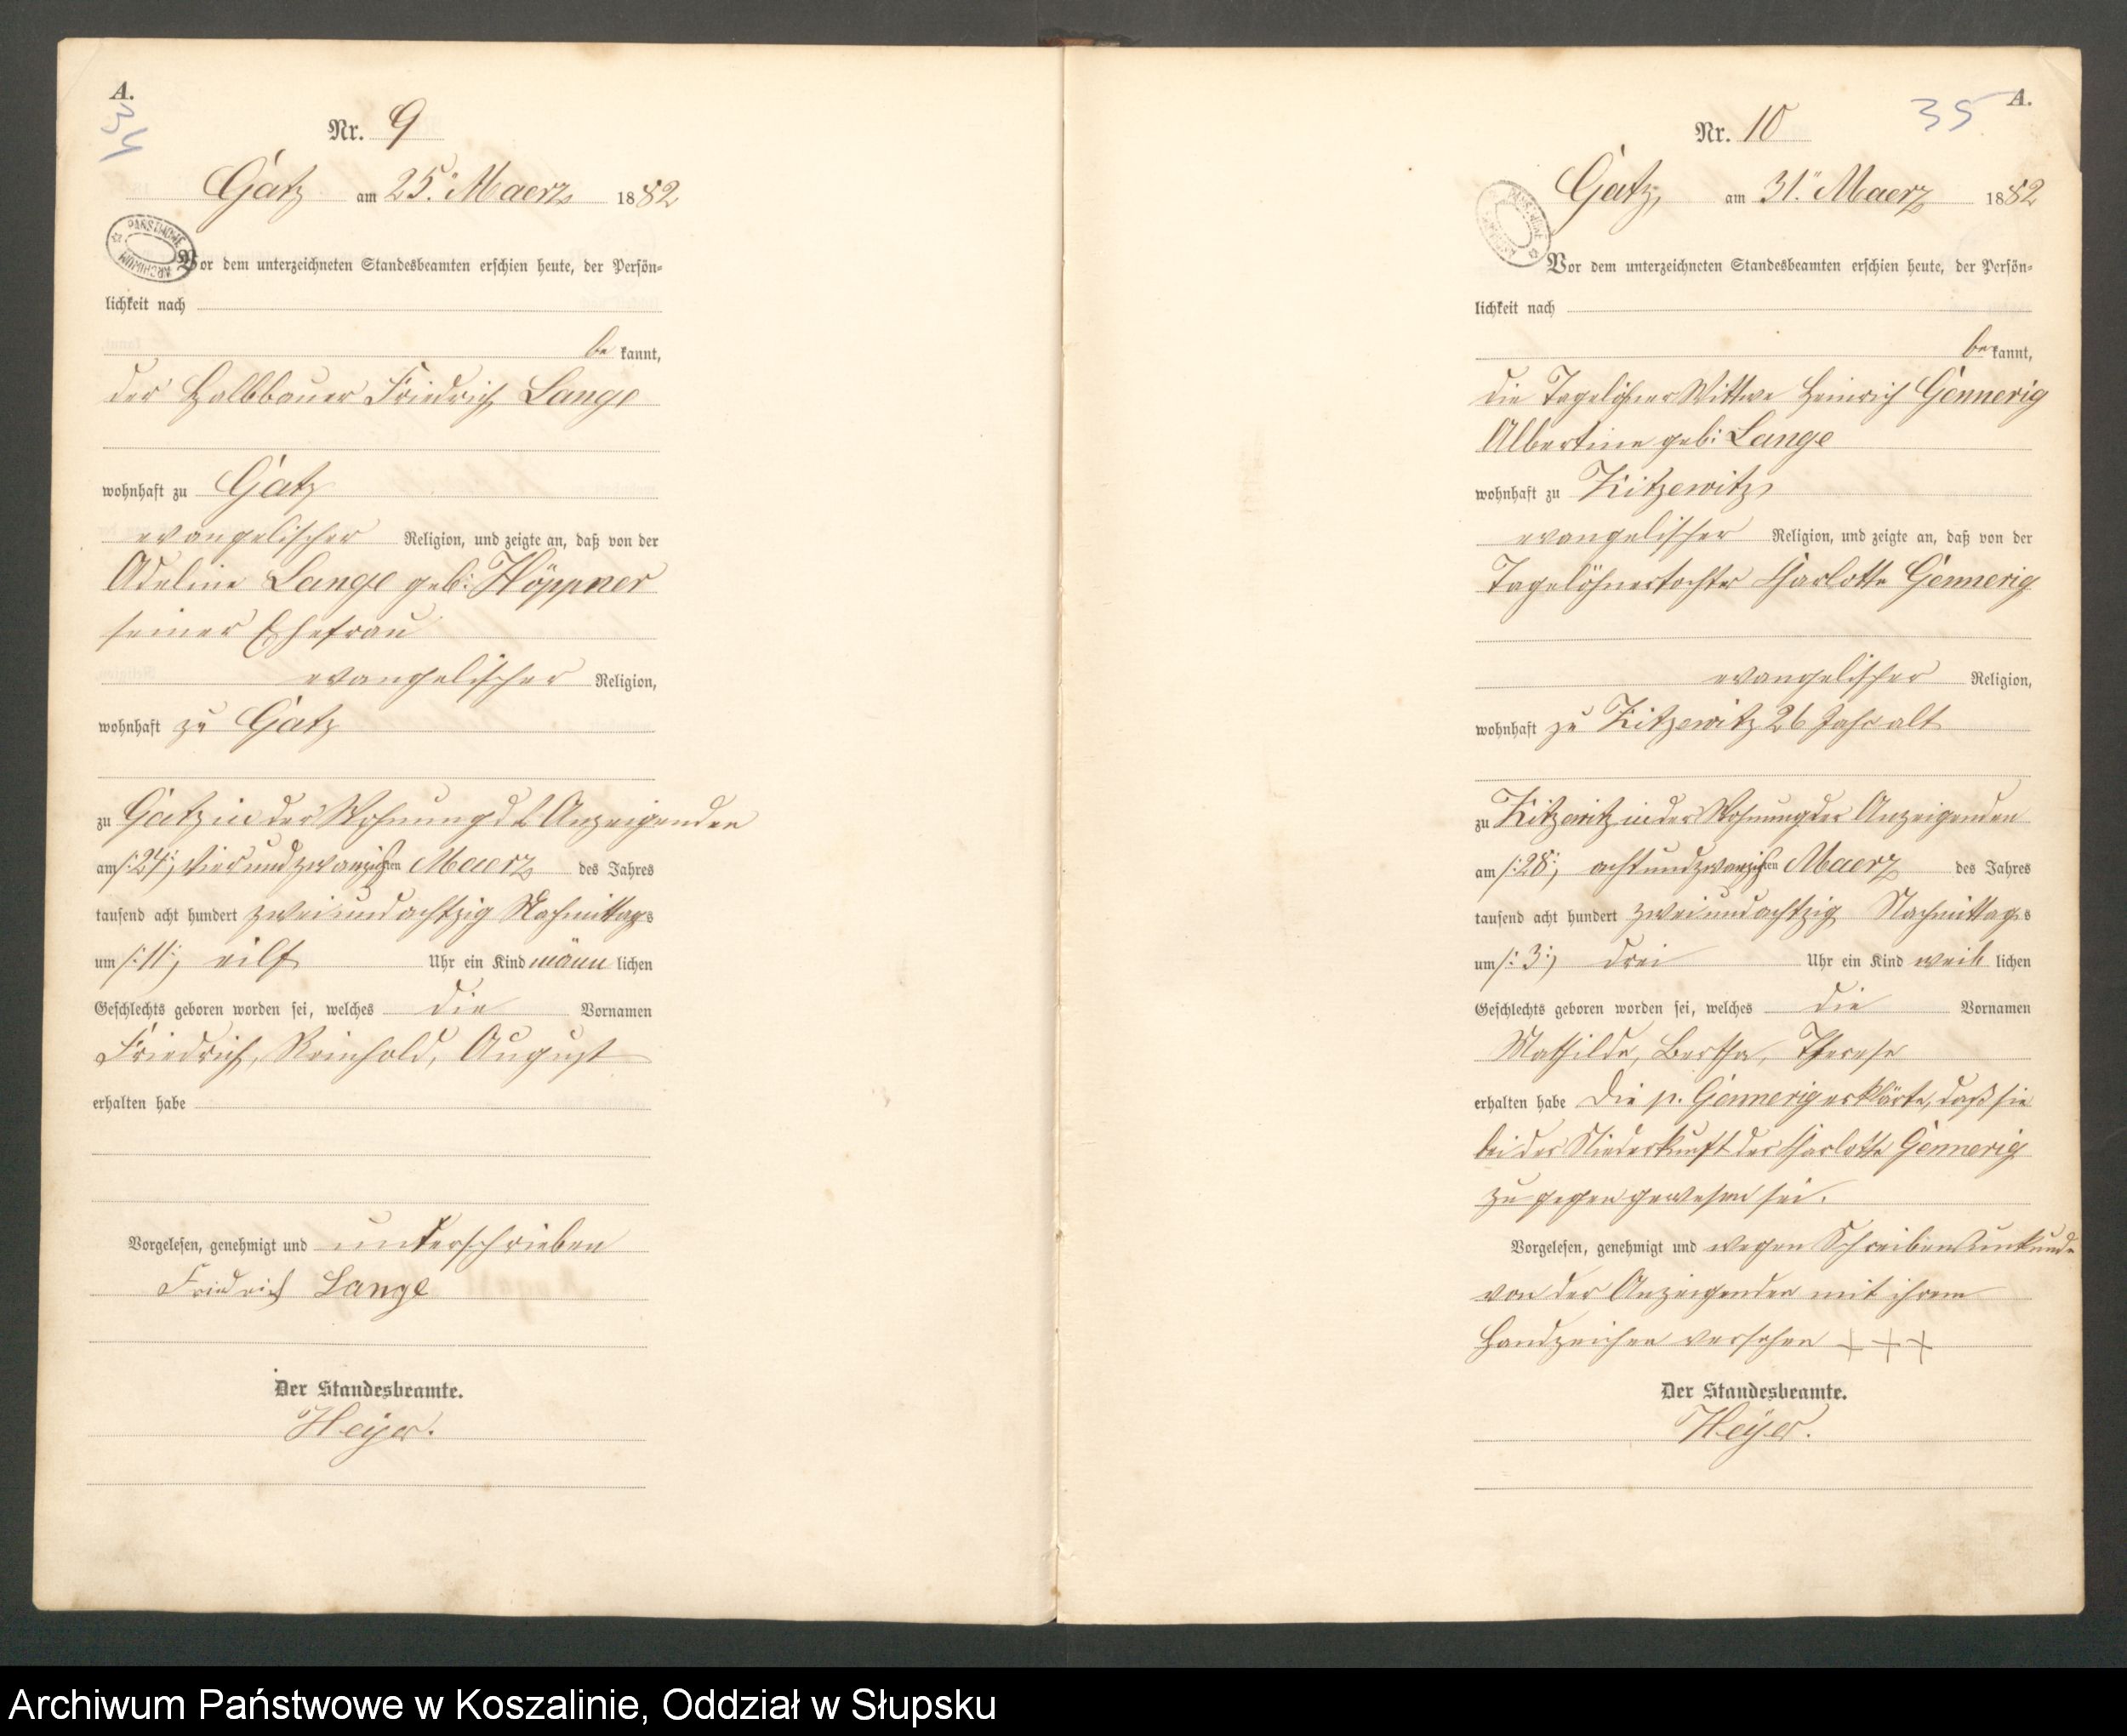 A.
34
Nr. 9
Gatz am 25. Maerz 1882
PAŃSTWOWE ARCHIWUM
Vor dem unterzeichneten Standesbeamten erschien heute, der Persön-
lichkeit nach
be kannt,
der Halbbauer Friedrich Lange
wohnhaft zu Gatz
evangelischer Religion, und zeigte an, daß von der
Adeline Lange geb: Höppner
seiner Ehefrau
evangelischer Religion,
wohnhaft zu Gatz
zu Gatz in der Wohnung des Anzeigenden
am /:24:/ vierundzwanzigsten Maerz des Jahres
tausend acht hundert zweiundachtzig Nachmittags
um /:11:/ eilf Uhr ein Kind männ lichen
Geschlechts geboren worden sei, welches die Vornamen
Friedrich, Reinhold, August
erhalten habe
Vorgelesen, genehmigt und unterschrieben
Friedrich Lange
Der Standesbeamte.
Heyer.
35
A.
Nr. 10
Gatz, am 31. Maerz 1882
Vor dem unterzeichneten Standesbeamten erschien heute, der Persön-
lichkeit nach
be kannt,
die Tagelöhner Wittwe Heinrich Gennerig
Albertine geb: Lange
wohnhaft zu Kitzewitz
evangelischer Religion, und zeigte an, daß von der
Tagelöhnertochter Charlotte Gennerig
evangelischer Religion,
wohnhaft zu Kitzewitz 26 Jahr alt
zu Kitzewitz in der Wohnung der Anzeigenden
am /:28:/ achtundzwanzigsten Maerz des Jahres
tausend acht hundert zweiundachtzig Nachmittags
um /:3:/ drei Uhr ein Kind weib lichen
Geschlechts geboren worden sei, welches die Vornamen
Mathilde, Bertha, Therese
erhalten habe Die p. Gennerig erklärte, daß sie
bei der Niederkunft der Charlotte Gennerig
zugegen gewesen sei.
Vorgelesen, genehmigt und wegen Schreibensunkunde
von der Anzeigenden mit ihrem
Handzeichen versehen + + +
Der Standesbeamte.
Heyer.
Archiwum Państwowe w Koszalinie, Oddział w Słupsku